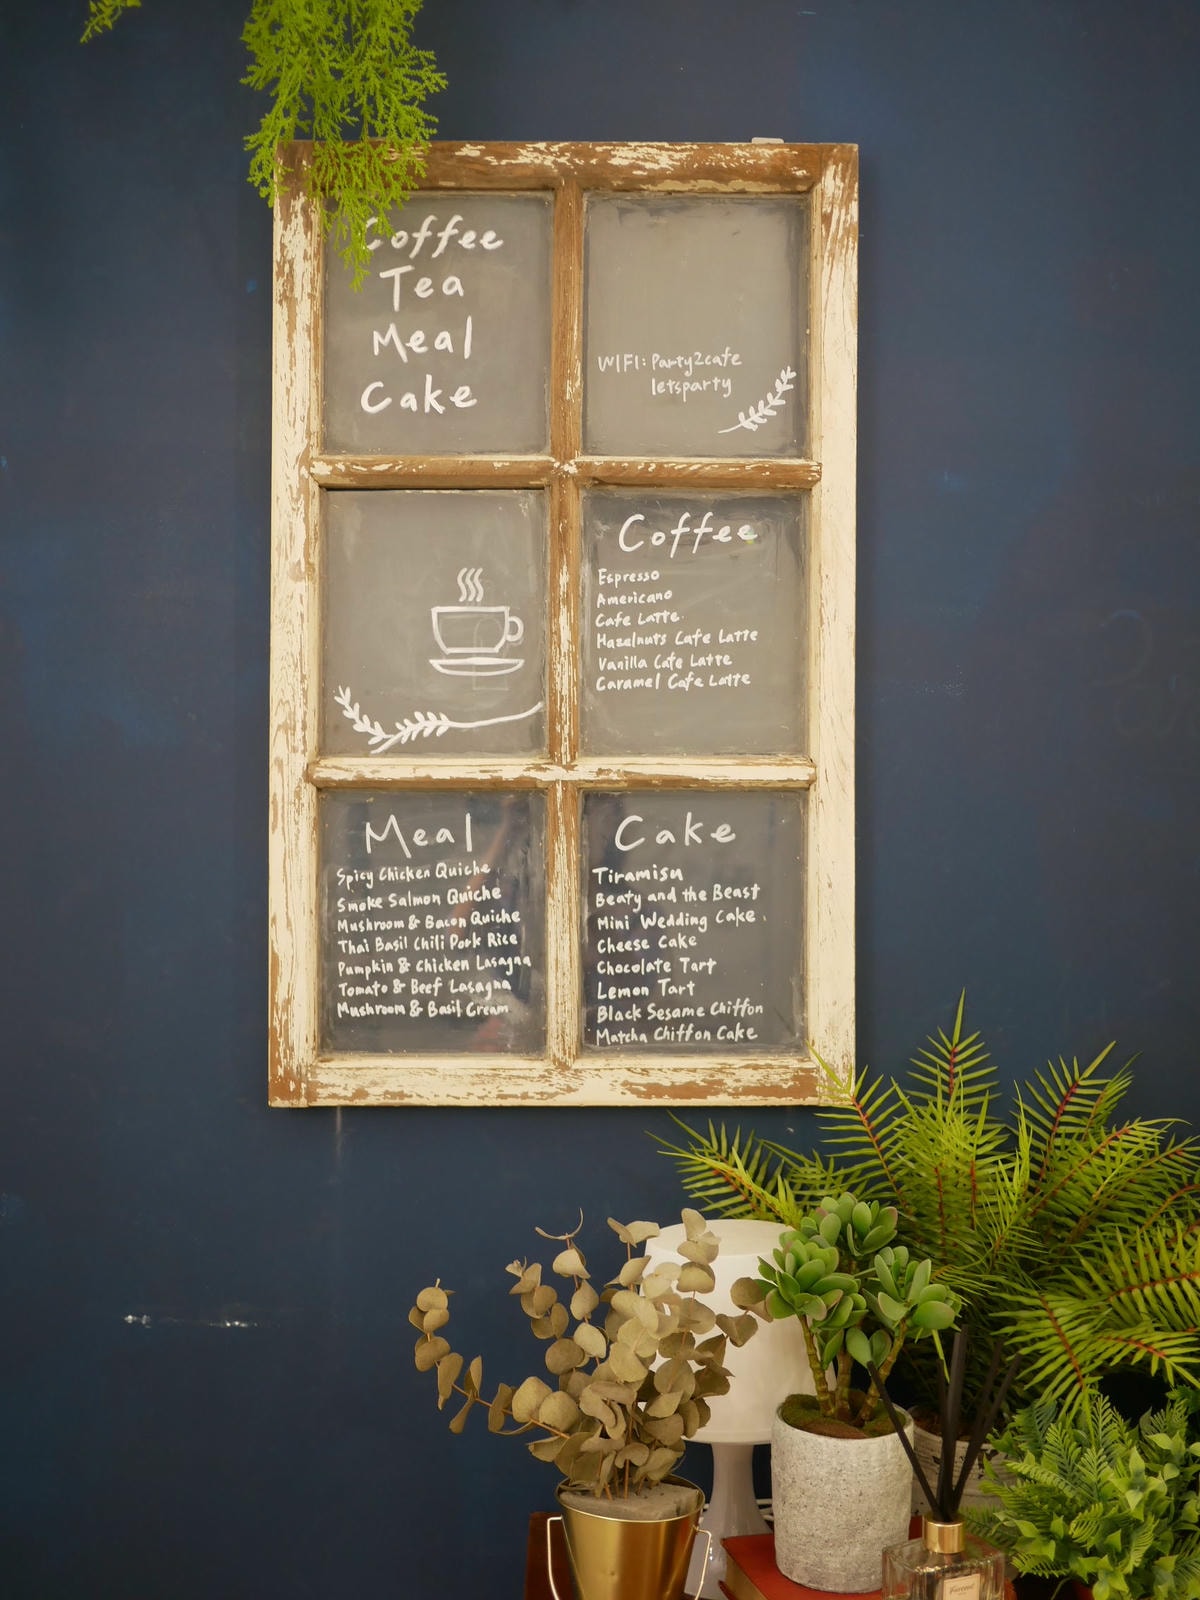 Coffee
Tea
Meal
Cake
WIFI: Party2cafe
letsparty
Coffee
Espresso
Americano
Cafe Latte
Hazelnuts Cafe Latte
Vanilla Cafe Latte
Caramel Cafe Latte
Meal
Spicy Chicken Quiche
Smoke Salmon Quiche
Mushroom & Bacon Quiche
Thai Basil Chili Pork Rice
Pumpkin & Chicken Lasagna
Tomato & Beef Lasagna
Mushroom & Basil Cream
Cake
Tiramisu
Beaty and the Beast
Mini Wedding Cake
Cheese Cake
Chocolate Tart
Lemon Tart
Black Sesame Chiffon
Matcha Chiffon Cake